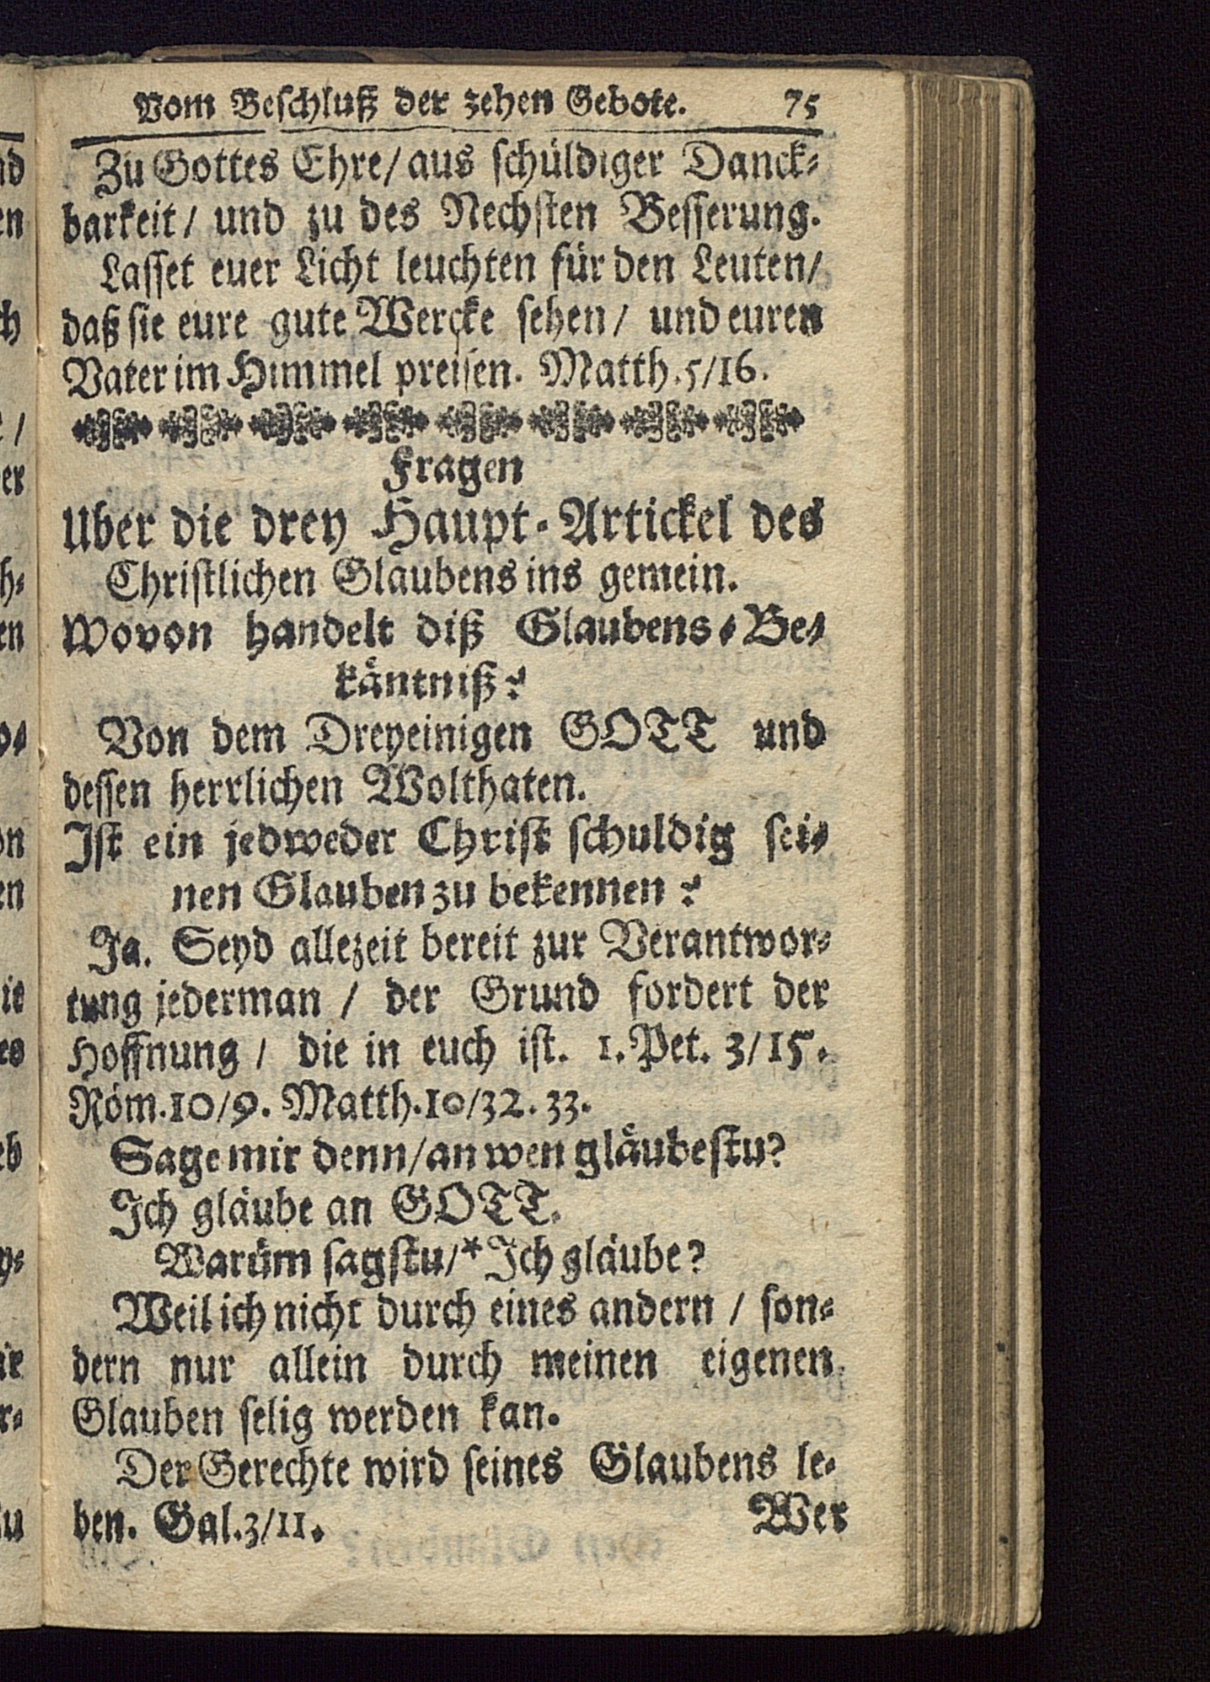 Vom Beschluß der zehen Gebote. 75
Zu Gottes Ehre/ aus schüldiger Danck-
barkeit/ und zu des Nechsten Besserung.
Lasset euer Licht leuchten für den Leuten/
daß sie eure gute Wercke sehen/ und euren
Vater im Himmel preisen. Matth. 5/16.
Fragen
Uber die drey Haupt-Artickel des
Christlichen Glaubens ins gemein.
Wovon handelt diß Glaubens-Be-
käntniß?
Von dem Dreyeinigen GOTT und
dessen herrlichen Wolthaten.
Ist ein jedweder Christ schuldig sei-
nen Glauben zu bekennen?
Ja. Seyd allezeit bereit zur Verantwor-
tung jederman / der Grund fordert der
Hoffnung / die in euch ist. 1. Pet. 3/15.
Röm. 10/9. Matth. 10/32. 33.
Sage mir denn/ an wen gläubestu?
Ich gläube an GOTT.
Warüm sagstu/* Ich gläube?
Weil ich nicht durch eines andern / son-
dern nur allein durch meinen eigenen
Glauben selig werden kan.
Der Gerechte wird seines Glaubens le-
ben. Gal. 3/11. Wer